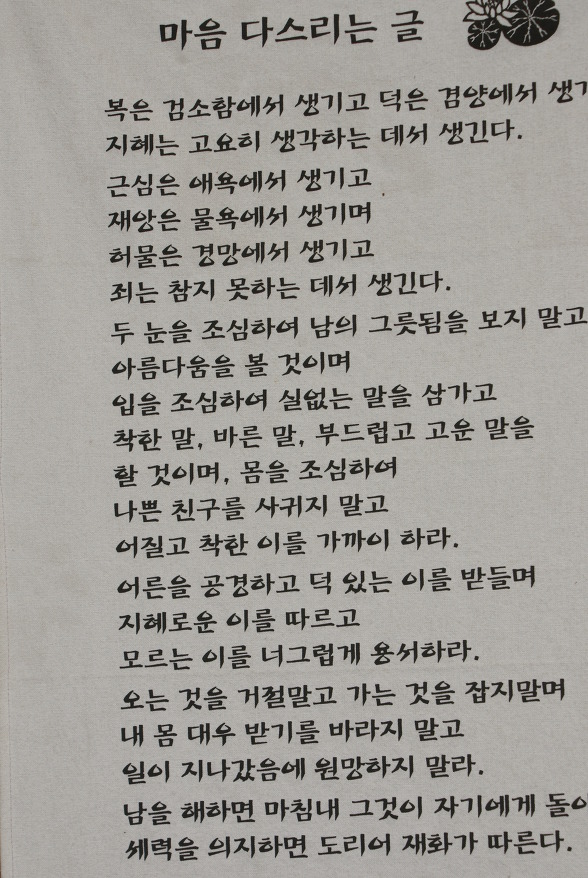 마음 다스리는 글
복은 검소함에서 생기고 덕은 겸양에서
지혜는 고요히 생각하는 데서 생긴다.
근심은 애욕에서 생기고
재앙은 물욕에서 생기며
허물은 경망에서 생기고
죄는 참지 못하는 데서 생긴다.
두 눈을 조심하여 남의 그릇됨을 보지 말고
아름다움을 볼 것이며
입을 조심하여 실없는 말을 삼가고
착한 말, 바른 말, 부드럽고 고운 말을
할 것이며, 몸을 조심하여
나쁜 친구를 사귀지 말고
어질고 착한 이를 가까이 하라.
어른을 공경하고 덕 있는 이를 받들며
지혜로운 이를 따르고
모르는 이를 너그럽게 용서하라.
오는 것을 거절말고 가는 것을 잡지말며
내 몸 대우 받기를 바라지 말고
일이 지나갔음에 원망하지 말라.
남을 해하면 마침내 그것이 자기에게
세력을 의지하면 도리어 재화가 따른다.